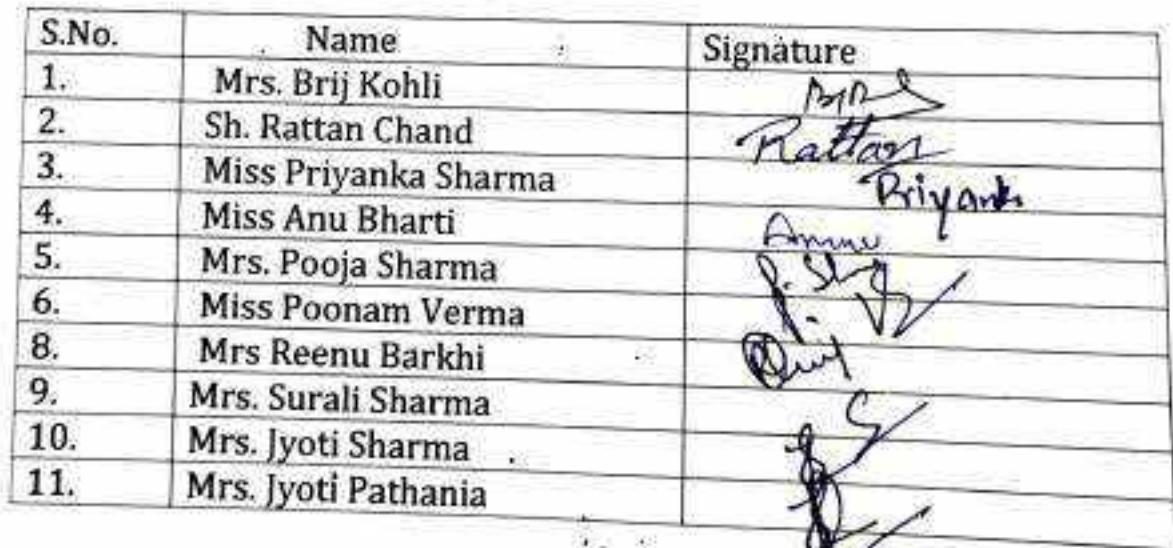 S.No. Name Signature
1. Mrs. Brij Kohli
2. Sh. Rattan Chand Rattan
3. Miss Priyanka Sharma Priyanka
4. Miss Anu Bharti
5. Mrs. Pooja Sharma
6. Miss Poonam Verma
8. Mrs Reenu Barkhi
9. Mrs. Surali Sharma
10. Mrs. Jyoti Sharma
11. Mrs. Jyoti Pathania